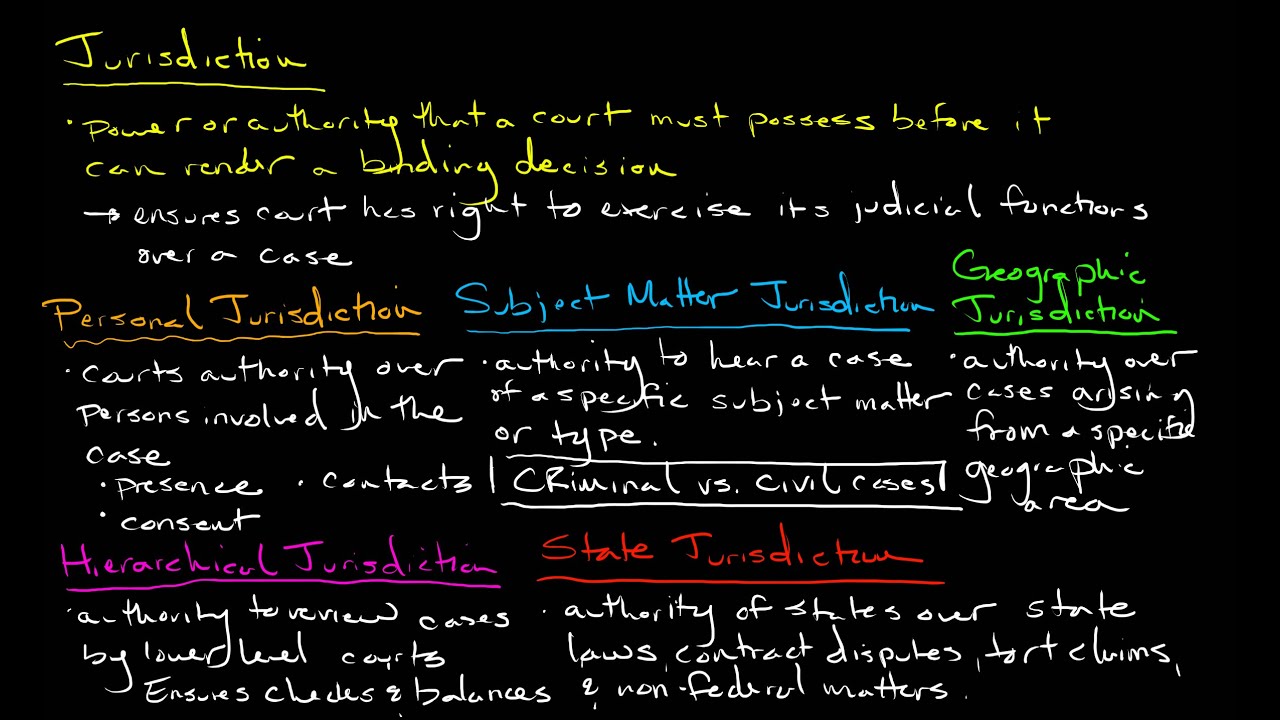 Jurisdiction
• Power or authority that a court must possess before it
can render a binding decision
→ ensures court has right to exercise its judicial functions
over a case
Personal Jurisdiction
• Courts authority over
persons involved in the
case
• presence • contacts
• consent
Subject Matter Jurisdiction
• authority to hear a case
of a specific subject matter
or type.
CRiminal vs. civil cases
Geographic
Jurisdiction
• authority over
cases arising
from a specific
geographic
area
Hierarchical Jurisdiction
• authority to review cases
by lower level courts
Ensures checks & balances
State Jurisdiction
• authority of states over state
laws, contract disputes, tort claims,
& non-federal matters.